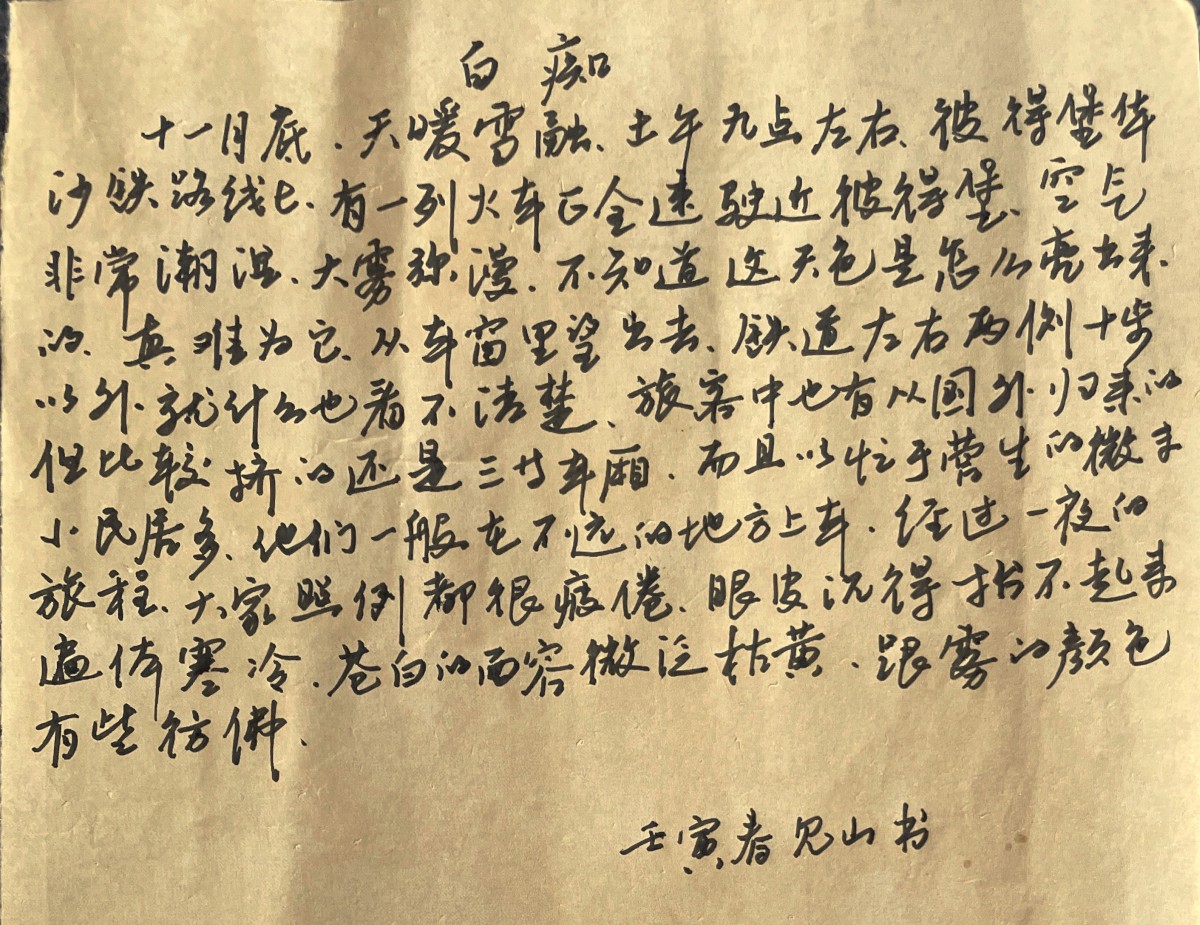 白痴
十一月底、天暖雪融、上午九点左右、彼得堡华
沙铁路线上、有一列火车正全速驶近彼得堡、空气
非常潮湿、大雾弥漫、不知道这天色是怎么亮出来
的、真难为它、从车窗里望出去、铁道左右两侧十步
以外就什么也看不清楚、旅客中也有从国外归来的
但比较挤的还是三等车厢、而且以忙于营生的微末
小民居多、他们一般在不远的地方上车、经过一夜的
旅程、大家照例都很疲倦、眼皮沉得抬不起来
遍体寒冷、苍白的面容微泛枯黄、跟雾的颜色
有些彷彿、
壬寅春见山书